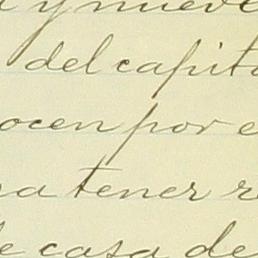 y nueve
del capit
ocen por e
a tener r
e casa de